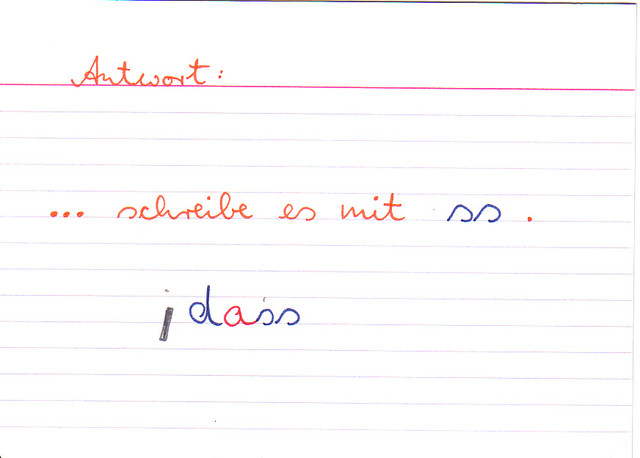 Antwort:
... schreibe es mit ss.
, dass